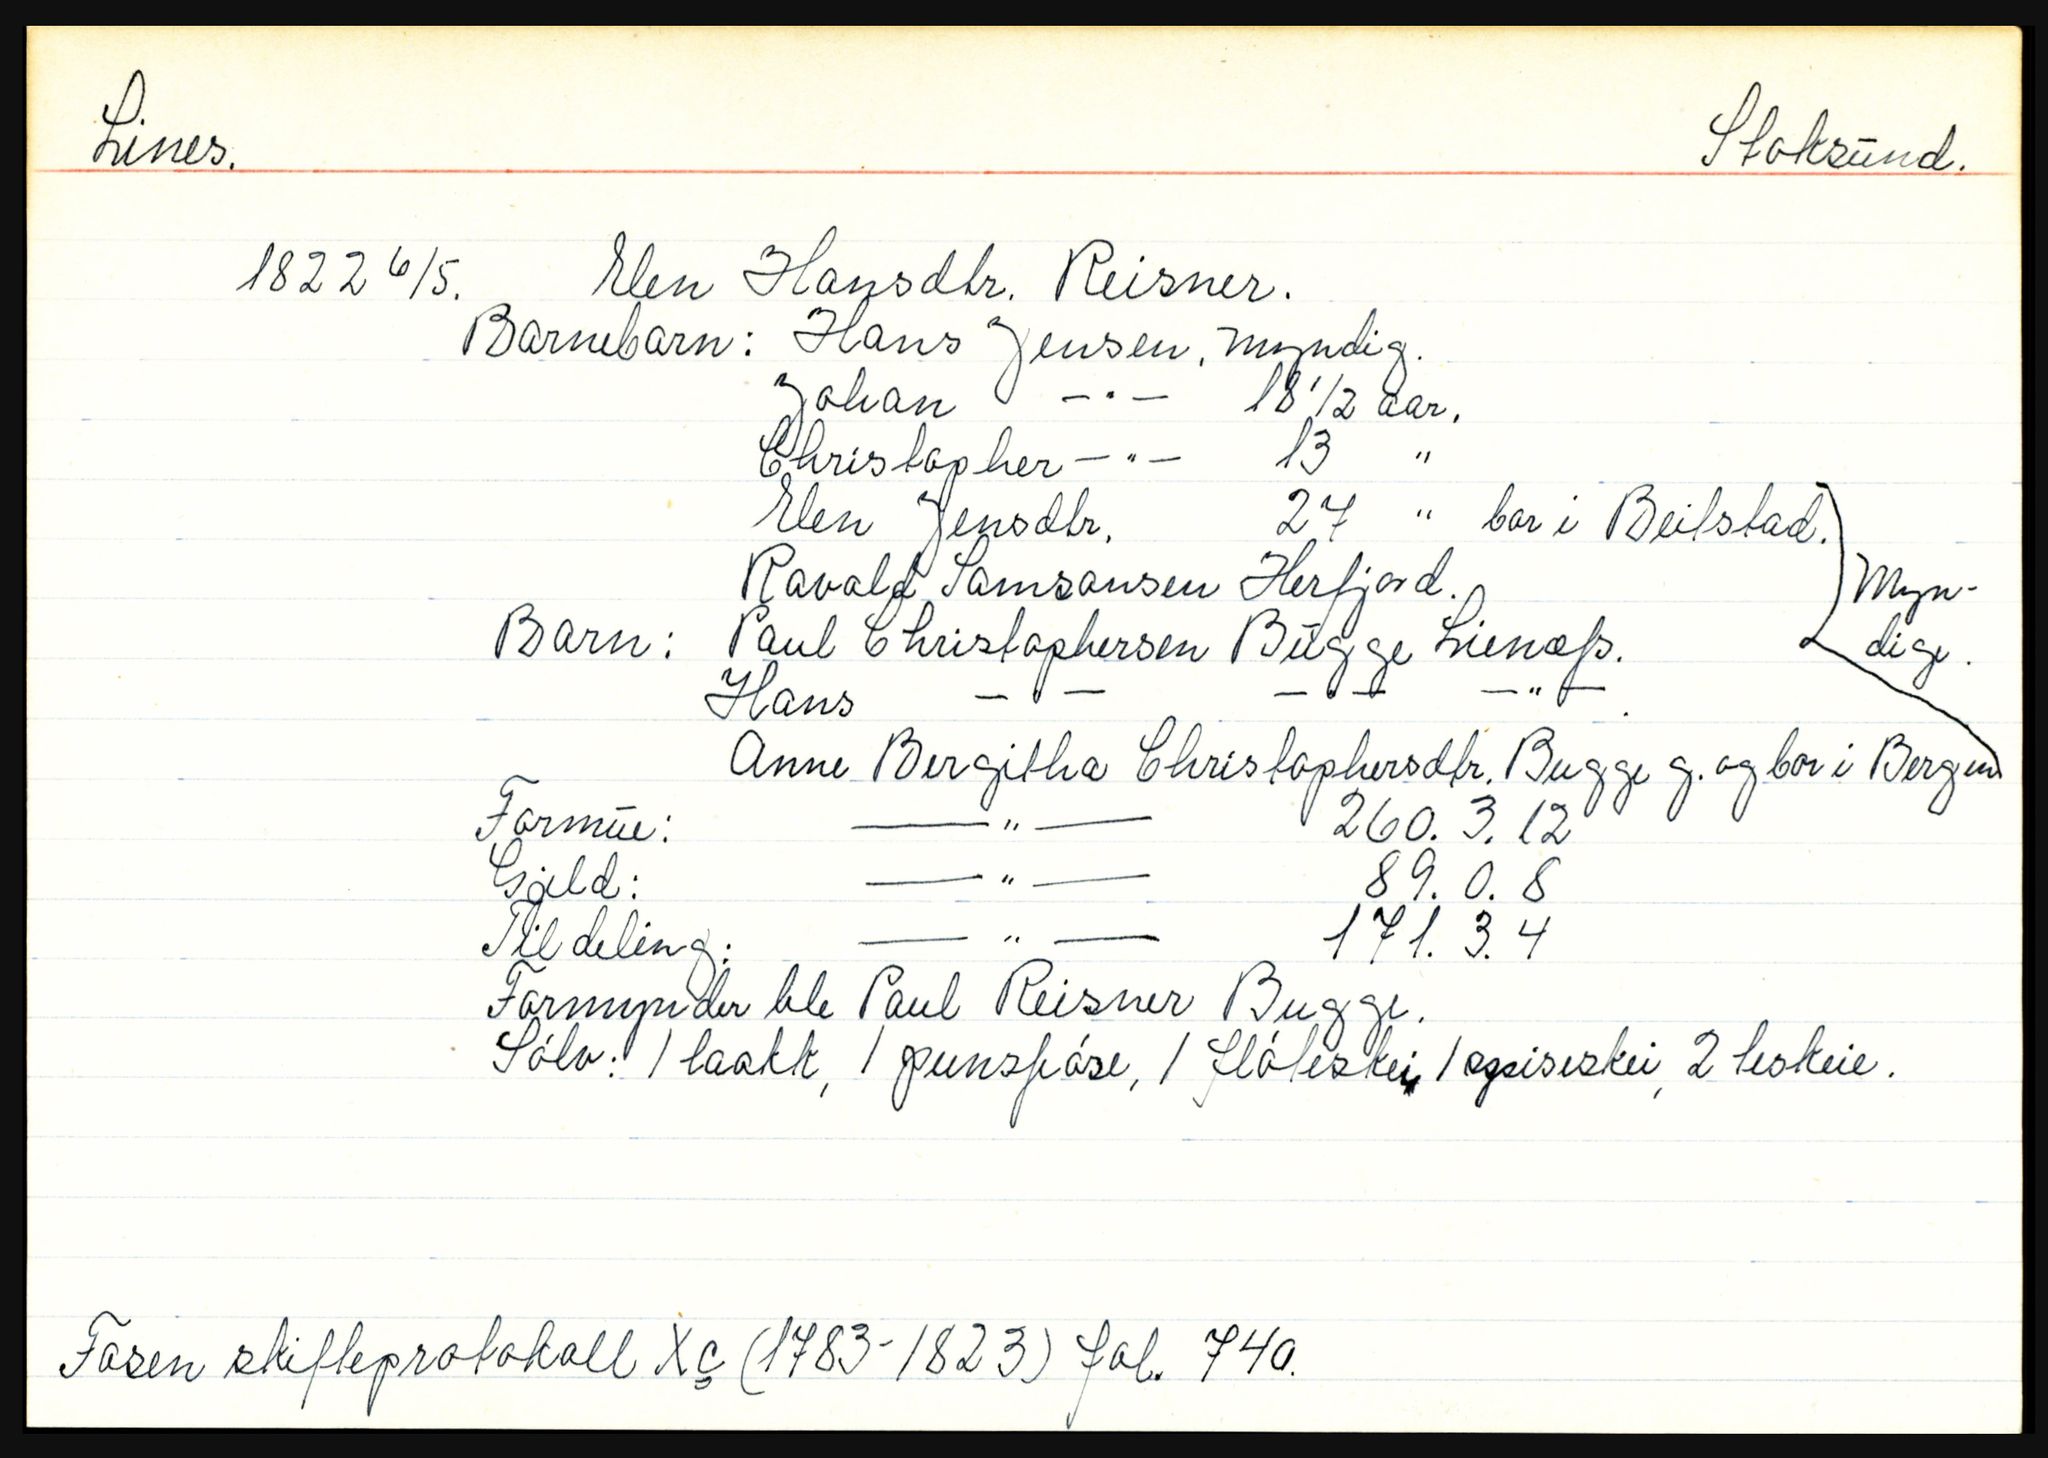 Lines.
Stoksund.
1822 6/5. Elen Hansdtr. Reisner.
Barnebarn: Hans Jensen, myndig.
Johan —"— 18 1/2 aar.
Christopher —"— 13 "
Elen Jensdtr. 27 " bor i Beitstad.
Ravald Samsonsen Herfjord.
Myn-
dige.
Barn: Paul Christophersen Bugge Lienæss.
Hans —"— —"— —"—.
Anne Bergitha Christophersdtr. Bugge g. og bor i Bergen
Formue: —"— 260. 3. 12
Gjæld: —"— 89. 0. 8
Til deling: —"— 171. 3. 4
Formynder ble Paul Reisner Bugge.
Sólv: 1 laakk, 1 1 flóteskei, 1 spiseskei, 2 teskeie.
Fosen skifteprotokoll Xc (1783-1823) fol. 740.